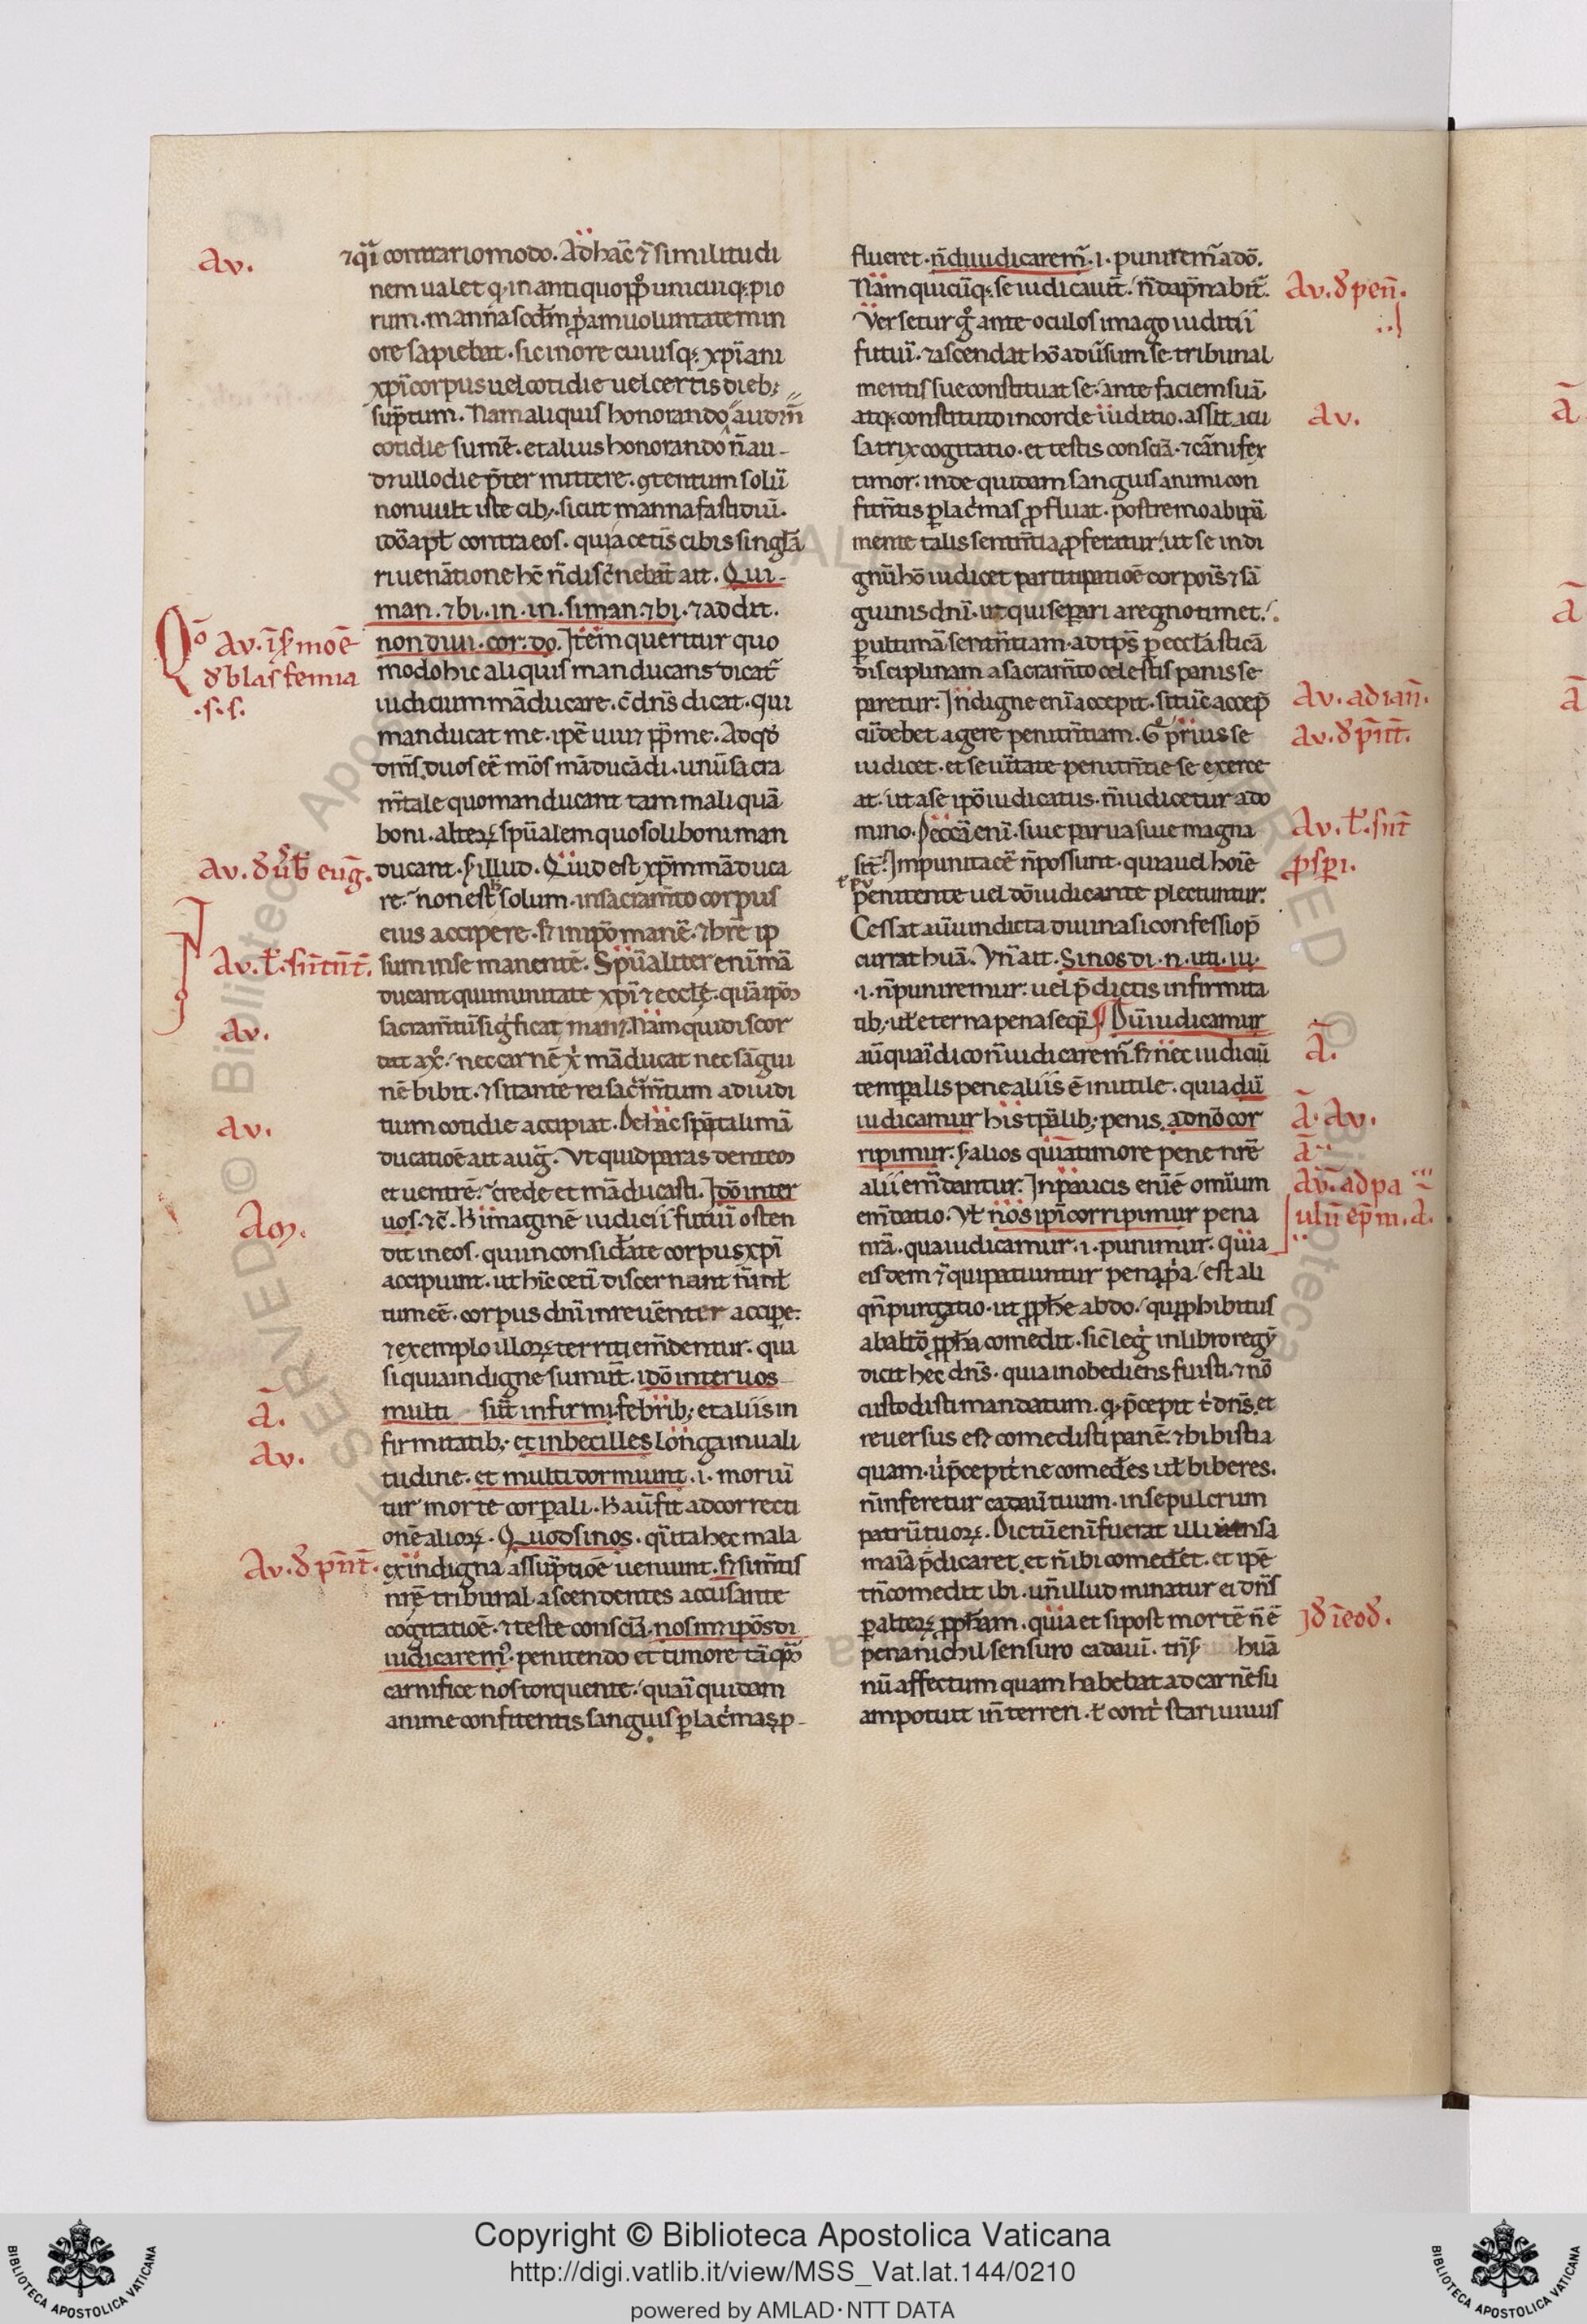 Av.
⁊ q̄ı contrario modo. Ad hāc ⁊̄ similitudi
nem ualet q̨ in antiquo pp̄l̄o unicuiq; pio
rum. manna scd̄m p̄p̄am uoluntatem in
ore sapiebat. sic in ore cuiusq; xp̄iani
xp̄i corpus uel cotidie uel certis dieb;
sūptum. Nam aliquis honorando audm̄
cotidie sumē. et alius honorando n̄ au-
d& ullo die p̄termittere. ꝯtentum solū
non uult iste cib;. sicut manna fastidiū.
idō apl̄ contra eos. quia cetīs cibis singl̄a
ri uenātione hc̄ n̄ disc̄nebāt ait. Qui-
man. ⁊ bi. in. in. si man. ⁊ bi. ⁊ addit.
Qō Av. ī s̄mōē
ď blasfemia
.s.s.
non diiu. cor. do. Item queritur quo
modo hic aliquis manducans dicat̄
iudicium māducare. c̄ dn̄s dicat. qui
manducat me. ipē uiu& pp̄ me. Ad qď
dn̄s. duos eē mōs māducādi. unū sacra
m̄tale quo manducant tam mali quā
boni. alterꝝ spūalem quo soli boni man
Av. ď ūb̄ eūg.
ducant. s; illud. Quid est xp̄m māduca
re. non est solum in sacram̄to corpus
eius accipere. s; in ipō manē. ⁊ hr̄e ip
Av. l̄. sn̄tn̄t̄.
sum in se manentē. Spūaliter enī mā
ducant qui in unitate xp̄i ⁊ eccl̄ę. quā ipō
Av.
sacram̄tū sig̓ficat man&. Nam qui discor
dat a xp̄o. nec carnē xp̄i māducat nec sāgui
nē bibit. ⁊ si tante rei sac̓m̄tum ad iudi
Av.
tium cotidie accipiat. De hac spūtali mā
ducatiōē ait aug̓. Vt quid paras dentem
et uentrē. crede et māducasti. Idō inter
Am.
uos. ⁊c̄. H imaginē iudicii futuī osten
dit in eos. qui inconsid̓ate corpus xp̄i
accipiunt. ut hīc cetī discernant n̄ inl̄
tum eē. corpus dn̄i inreuēnter accipe.
⁊ exemplo illorꝝ territi em̄dentur. qui
si quia indigne sumūt. idō inter uos
Ā.
multi sūt infirmi. febrib; et aliis in
Av.
firmitatib;. et inbecilles longa inuali
tudine. et multi dormiunt. i. moriū
tur morte corp̄ali. H aū fit ad correcti
onē aliorꝝ. Quod si nos. qui ita hec mala
Av. ď pn̄t̄.
ex indigna assūptiōē ueniunt. s; si m̄tis
nr̄ę tribunal ascendentes accusante
cogitatiōē. ⁊ teste consciā. nosm̄ ipōs di
iudicarem̓. penitendo et timore tāq̄m
carnifice nos torquente. quaī quidam
anime confitentis sanguis p̄ lac̓mas p-
flueret. n̄ diiudicarem̓. i. puniremr̄ a dō.
Av. ď pen̄.
Nam quicūq; se iudicauīt. n̄ dap̄nabit̄.
Versetur g̓ ante oculos imago iuditii
futuī. ⁊ ascendat hō adūsum se tribunal
mentis sue constituat se ante faciem suā
Av.
atq; constituto in corde iuditio. assit accu
satrix cogitatio. et testis consciā. ⁊ carnifex
timor. inde quidam sanguis animi con
fitētis p̄ lac̓mas p̄fluat. postremo ab ipā
mente talis sentn̄tia p̄feratur. ut se indi
gnū hō iudicet participatiōē corpoīs ⁊ sā
guinis dn̄i. ut qui separi a regno timet.
p̄ ultimā sentn̄tiam. ad tp̄s p̄ eccl̄asticā
disciplinam a sacram̄to celestis panis se
Av. ad ian̄.
paretur. Indigne enī accepit. si tūc accep̄
Av. ď pn̄t̄.
cū debet agere penitn̄tiam. G̊ prius se
iudicet. et seu̓itate penitn̄tie se exerce
at. ut a se ipō iudicatus. n̄ iudicetur a do
Av. l̄. sn̄t̄
mino. Peccā enī siue parua siue magna
ꝓsp̄i.
sīt. Impunita eē n̄ possunt. quia uel hoīe
penitente uel dō iudicante plectuntur.
Cessat aū uindicta diuina si confessio p̄
currat huā. Vn̄ ait. Si nos di. n. uti. iu.
.i. n̄ puniremur. uel p̄dictis infirmita
tib; ul̄ eterna pena seq̄. ¶ Dū iudicamur
Ā.
aū quaī dico n̄ iudicarem̓. s; nec iudiciū
temp̄alis pene aliis ē inutile. quia dū
Ā. Av.
iudicamur his tp̄alib; penis. a dn̄o cor
Ā
ripimur. s; alios quia timore pene nr̄ē
Av̄. ad pa
alii em̄dantur. In paucis enī ē omīum
ulīn ep̄m. d.
em̄datio. Vl̄ nōs ipī corripimur pena
nrā. qua iudicamur. i. punimur. quia
eisdem ⁊ qui patiuntur pena p̄pa est ali
qn̄ purgatio. ut pp̄he abdo. qui p̄hibitus
ab alto pp̄ha comedit. sic̄ leg̓ in libro regū
dicit hec dn̄s. quia inobediens fuisti. ⁊ nō
custodisti mandatum. q̨ p̄cepit t̓ dn̄s. et
reuersus es ⁊ comedisti panē. ⁊ bibisti a
quam. u̓ p̄cepit ne comed̄es ul̄ biberes.
n̄ inferetur cadaū tuum. in sepulcrum
patrū tuorꝝ. Dictū enī fuerat illi ut in sa
maīa p̄dicaret. et n̄ ibi comed̄et. et ipē
tn̄ comedit ibi. un̄ illud minatur ei dn̄s
Iď īeoď.
p̄ alterꝝ pp̄ham. quia et si post mortē n̄ ē
pena nichil sensuro cadaūi. tn̄ s; huā
nū affectum quam habebat ad carnē su
am potuit in̄terreri. l̄ cont̓stari uiuus
Copyright © Biblioteca Apostolica Vaticana
http://digi.vatlib.it/view/MSS_Vat.lat.144/0210
powered by AMLAD·NTT DATA
BIBLIOTECA APOSTOLICA VATICANA
BIBLIOTECA APOSTOLICA VATICANA